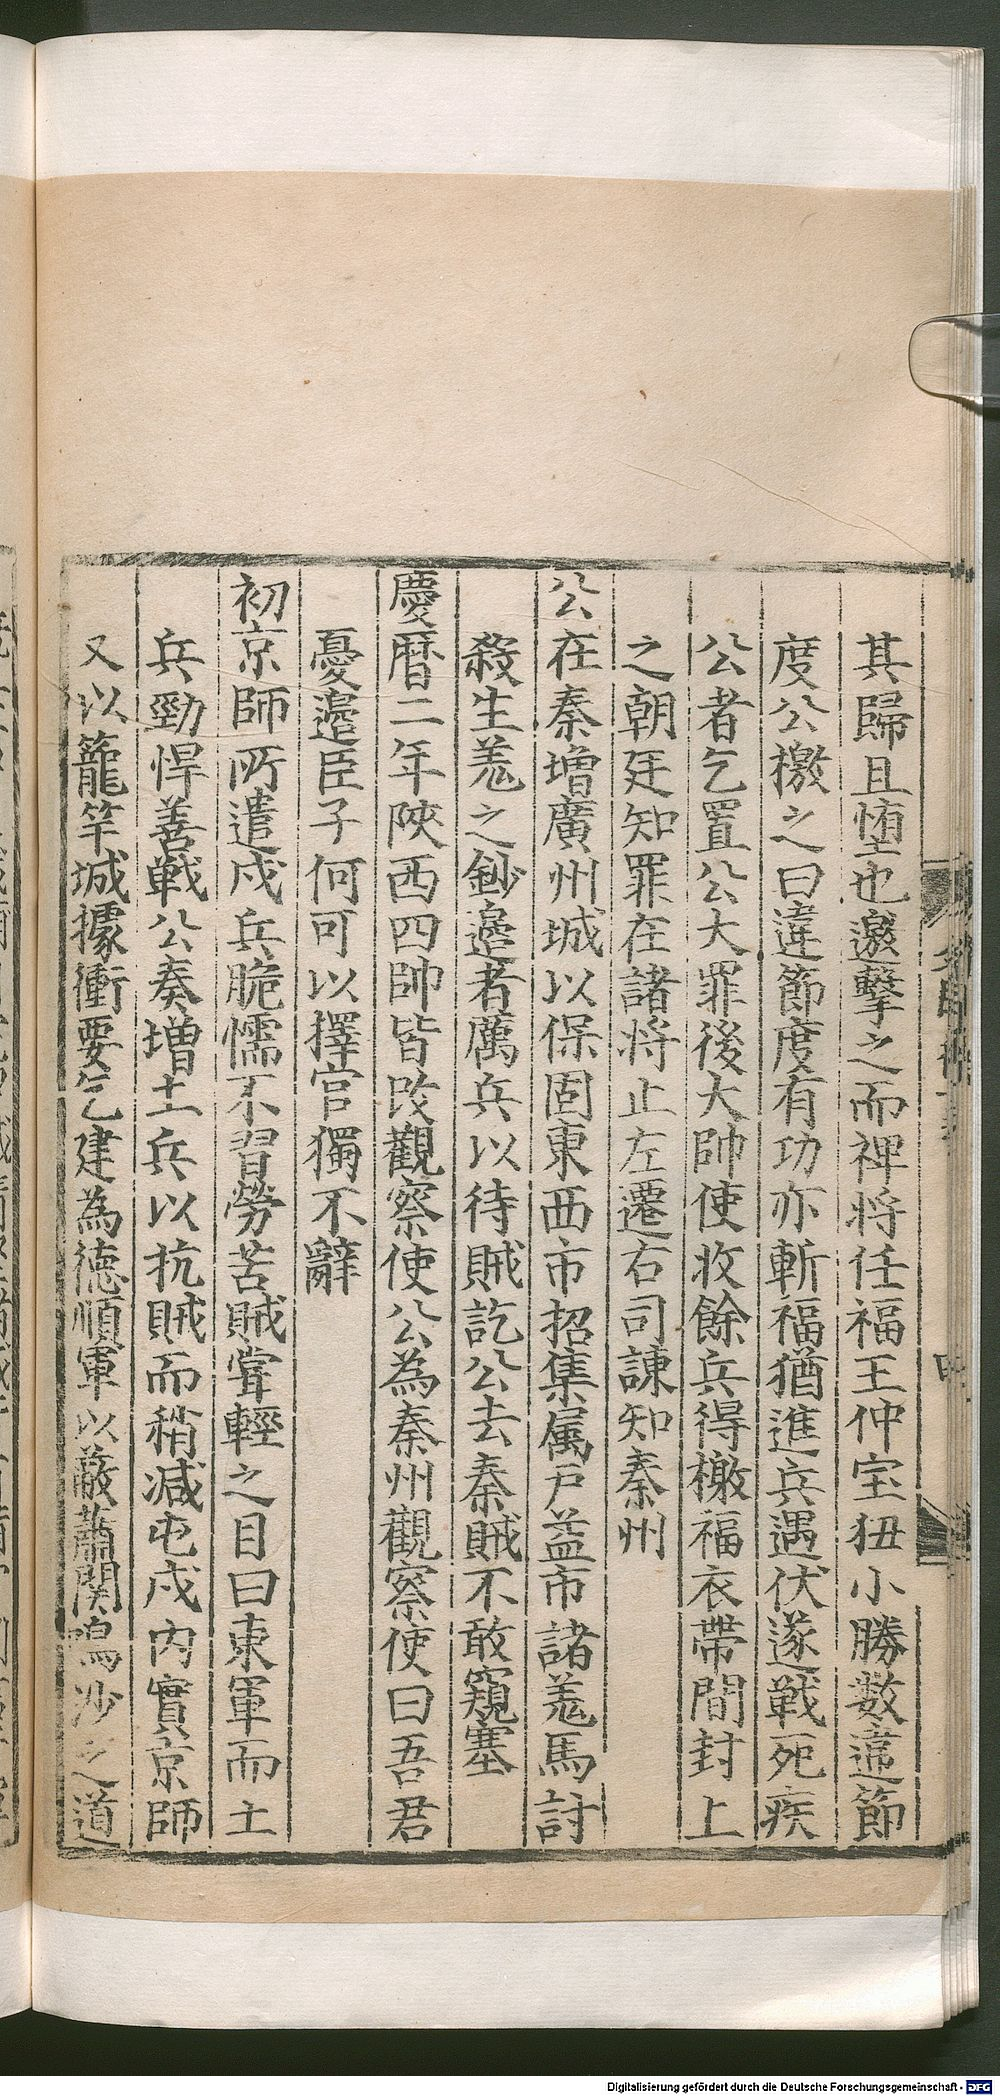 其歸且堕也邀擊之而裨将任福王仲宝狃小勝数違節
度公檄之曰違節度有功亦斬福猶進兵遇伏遂戦死疾
公者乞置公大罪後大帥使收餘兵得檄福衣帶間封上
之朝廷知罪在諸将止左遷右司諌知秦州
公在秦增廣州城以保固東西市招集属户益市諸羗馬討
殺生羗之鈔邉者厲兵以待賊訖公去秦賊不敢窺塞
慶曆二年陝西四帥皆改觀察使公為秦州觀察使曰吾君
憂邉臣子何可以擇官獨不辭
初京師所遣戍兵脆懦不習勞苦賊嘗輕之目曰東軍而土
兵勁悍善戦公奏增土兵以抗賊而稍减屯戍内實京師
又以籠竿城據衝要乞建為德順軍以蔽蕭関鳴沙之道
Digitalisierung gefördert durch die Deutsche Forschungsgemeinschaft - DFG